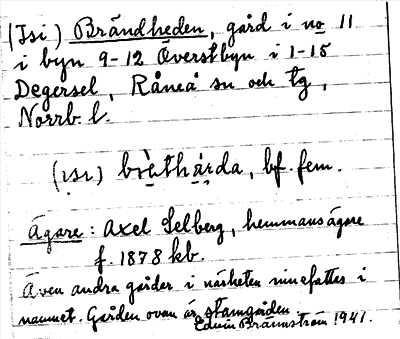 (Isi) Brändheden, gård i no 11
i byn 9-12 Överstbyn i 1-15
Degersel, Råneå sn och tg,
Norrb. l.
(ısı) brèthárda, bf. fem.
Ägare: Axel Selberg, hemmansägare
f. 1878 kb.
Även andra gårdar i närheten innefattes i
namnet. Gården ovan är stamgården.
Edvin Brännström 1941.